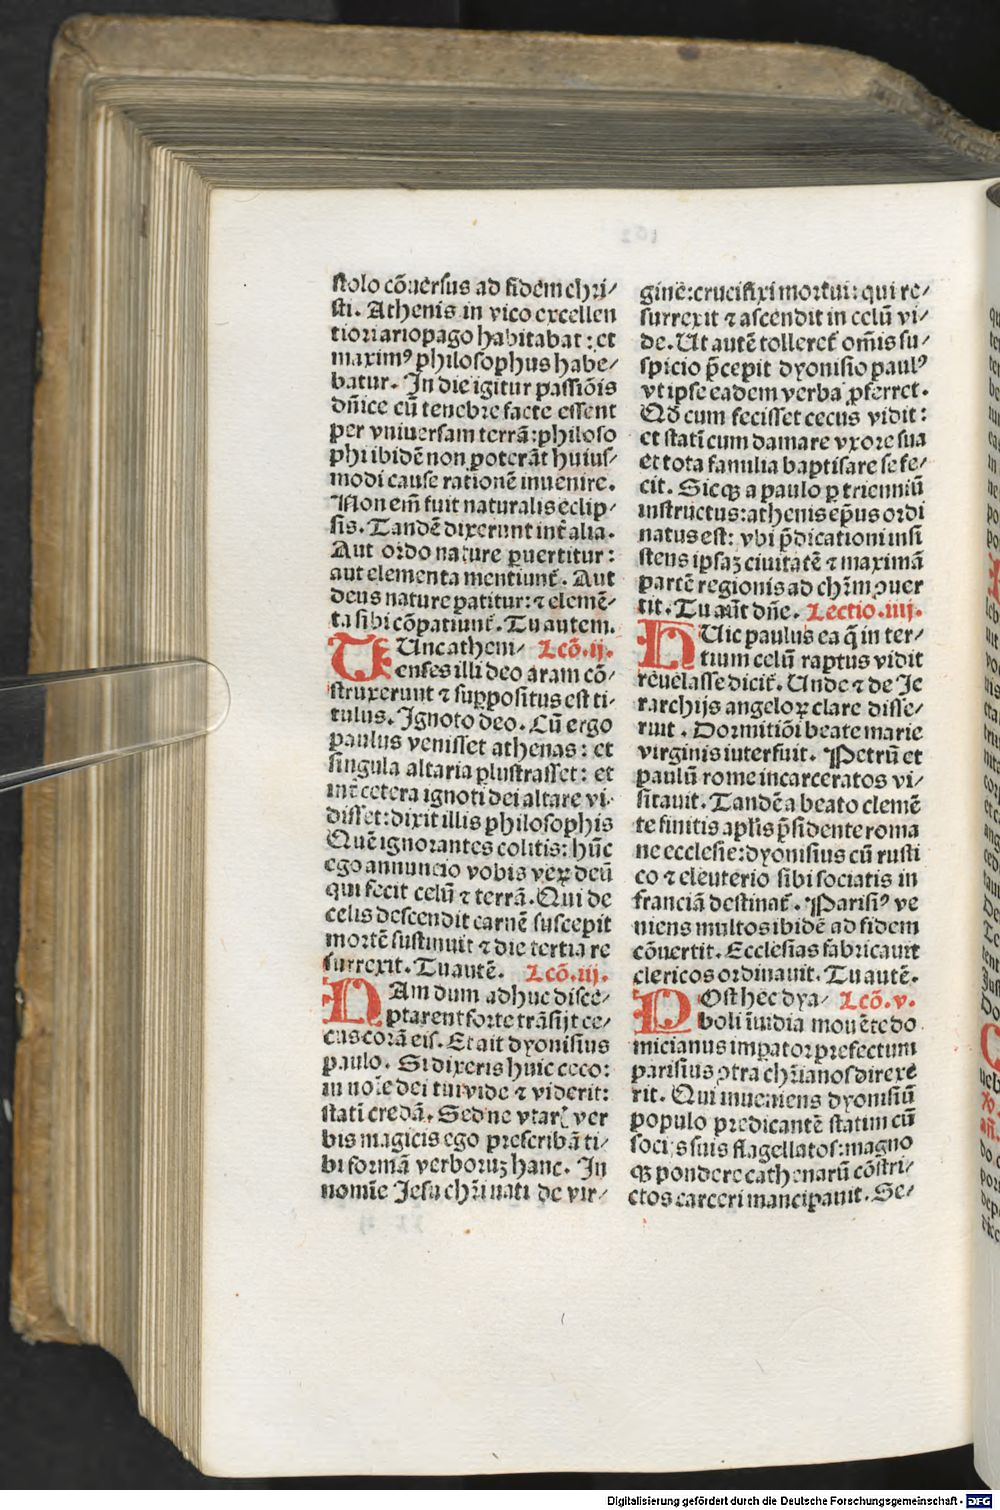 stolo cõuersus ad fidem chri/
sti. Athenis in vico excellen
tiori ariopago habitabat : et
maximꝰ philosophus habe/
batur. In die igitur passiõis
dñice cũ tenebre facte essent
per vniuersam terrã: philoso
phi ibidẽ non poterãt huius/
modi cause rationẽ inuenire.
Non em̃ fuit naturalis eclip/
sis. Tandẽ dixerunt int̃ alia.
Aut ordo nature ꝑuertitur:
aut elementa mentiunt̃. Aut
deus nature patitur: ⁊ elemẽ/
ta sibi cõpatiunt̃. Tu autem.
TUnc athem/ Lcõ.ij.
enses illi deo aram cõ/
struxerunt ⁊ suppositus est ti/
tulus. Ignoto deo. Cũ ergo
paulus venisset athenas: et
singula altaria ꝑlustrasset: et
int̃ cetera ignoti dei altare vi/
disset: dixit illis philosophis
Quẽ ignorantes colitis: hũc
ego annuncio vobis veꝝ deũ
qui fecit celũ ⁊ terrã. Qui de
celis descendit carnẽ suscepit
mortẽ sustinuit ⁊ die tertia re
surrexit. Tu autẽ. Lcõ.iij.
NAm dum adhuc disce/
ptarent forte trãsijt ce/
cus corã eis. Et ait dyonisius
paulo. Si dixeris huic ceco:
in noĩe dei tui vide ⁊ viderit:
statĩ credã. Sed ne vtaris ver
bis magicis ego prescribã ti/
bi formã verboruꝫ hanc. In
nomĩe Jesu chr̃i nati de vir/
ginẽ: crucifixi mortui: qui re/
surrexit ⁊ ascendit in celũ vi/
de. Ut autẽ tolleret̃ om̃is su/
spicio p̃cepit dyonisio paulꝰ
vt ipse eadem verba ꝓferret.
Qd̃ cum fecisset cecus vidit:
et statĩ cum damare vxore sua
et tota familia baptisare se fe/
cit. Sicqꝫ a paulo ꝑ trienniũ
instructus: athenis ep̃us ordi
natus est: vbi p̃dicationi insi
stens ipsaꝫ ciuitatẽ ⁊ maximã
partẽ regionis ad chr̃m ꝯuer
tit. Tu aũt dñe. Lectio.iiij.
HUic paulus ea q̃ in ter/
tium celũ raptus vidit
reuelasse dicit̃. Unde ⁊ de Je
rarchijs angeloꝝ clare disse/
ruit. Dormitiõi beate marie
virginis interfuit. Petrũ et
paulũ rome incarceratos vi/
sitauit. Tandẽ a beato clemẽ
te finitis apl̃is p̃sidente roma
ne ecclesie: dyonisius cũ rusti
co ⁊ eleuterio sibi sociatis in
franciã destinat̃. Parisiꝰ ve
niens multos ibidẽ ad fidem
cõuertit. Ecclesias fabricauit
clericos ordinauit. Tu autẽ.
POst hec dya/ Lcõ.v.
boli ĩuidia mouẽte do
micianus imꝑator prefectum
parisius ꝯtra chr̃ianos direxe
rit. Qui inueniens dyonisiũ
populo predicantẽ statim cũ
socijs suis flagellatos: magno
qꝫ pondere cathenarũ cõstri/
ctos carceri mancipauit. Se/
Digitalisierung gefördert durch die Deutsche Forschungsgemeinschaft - DFG